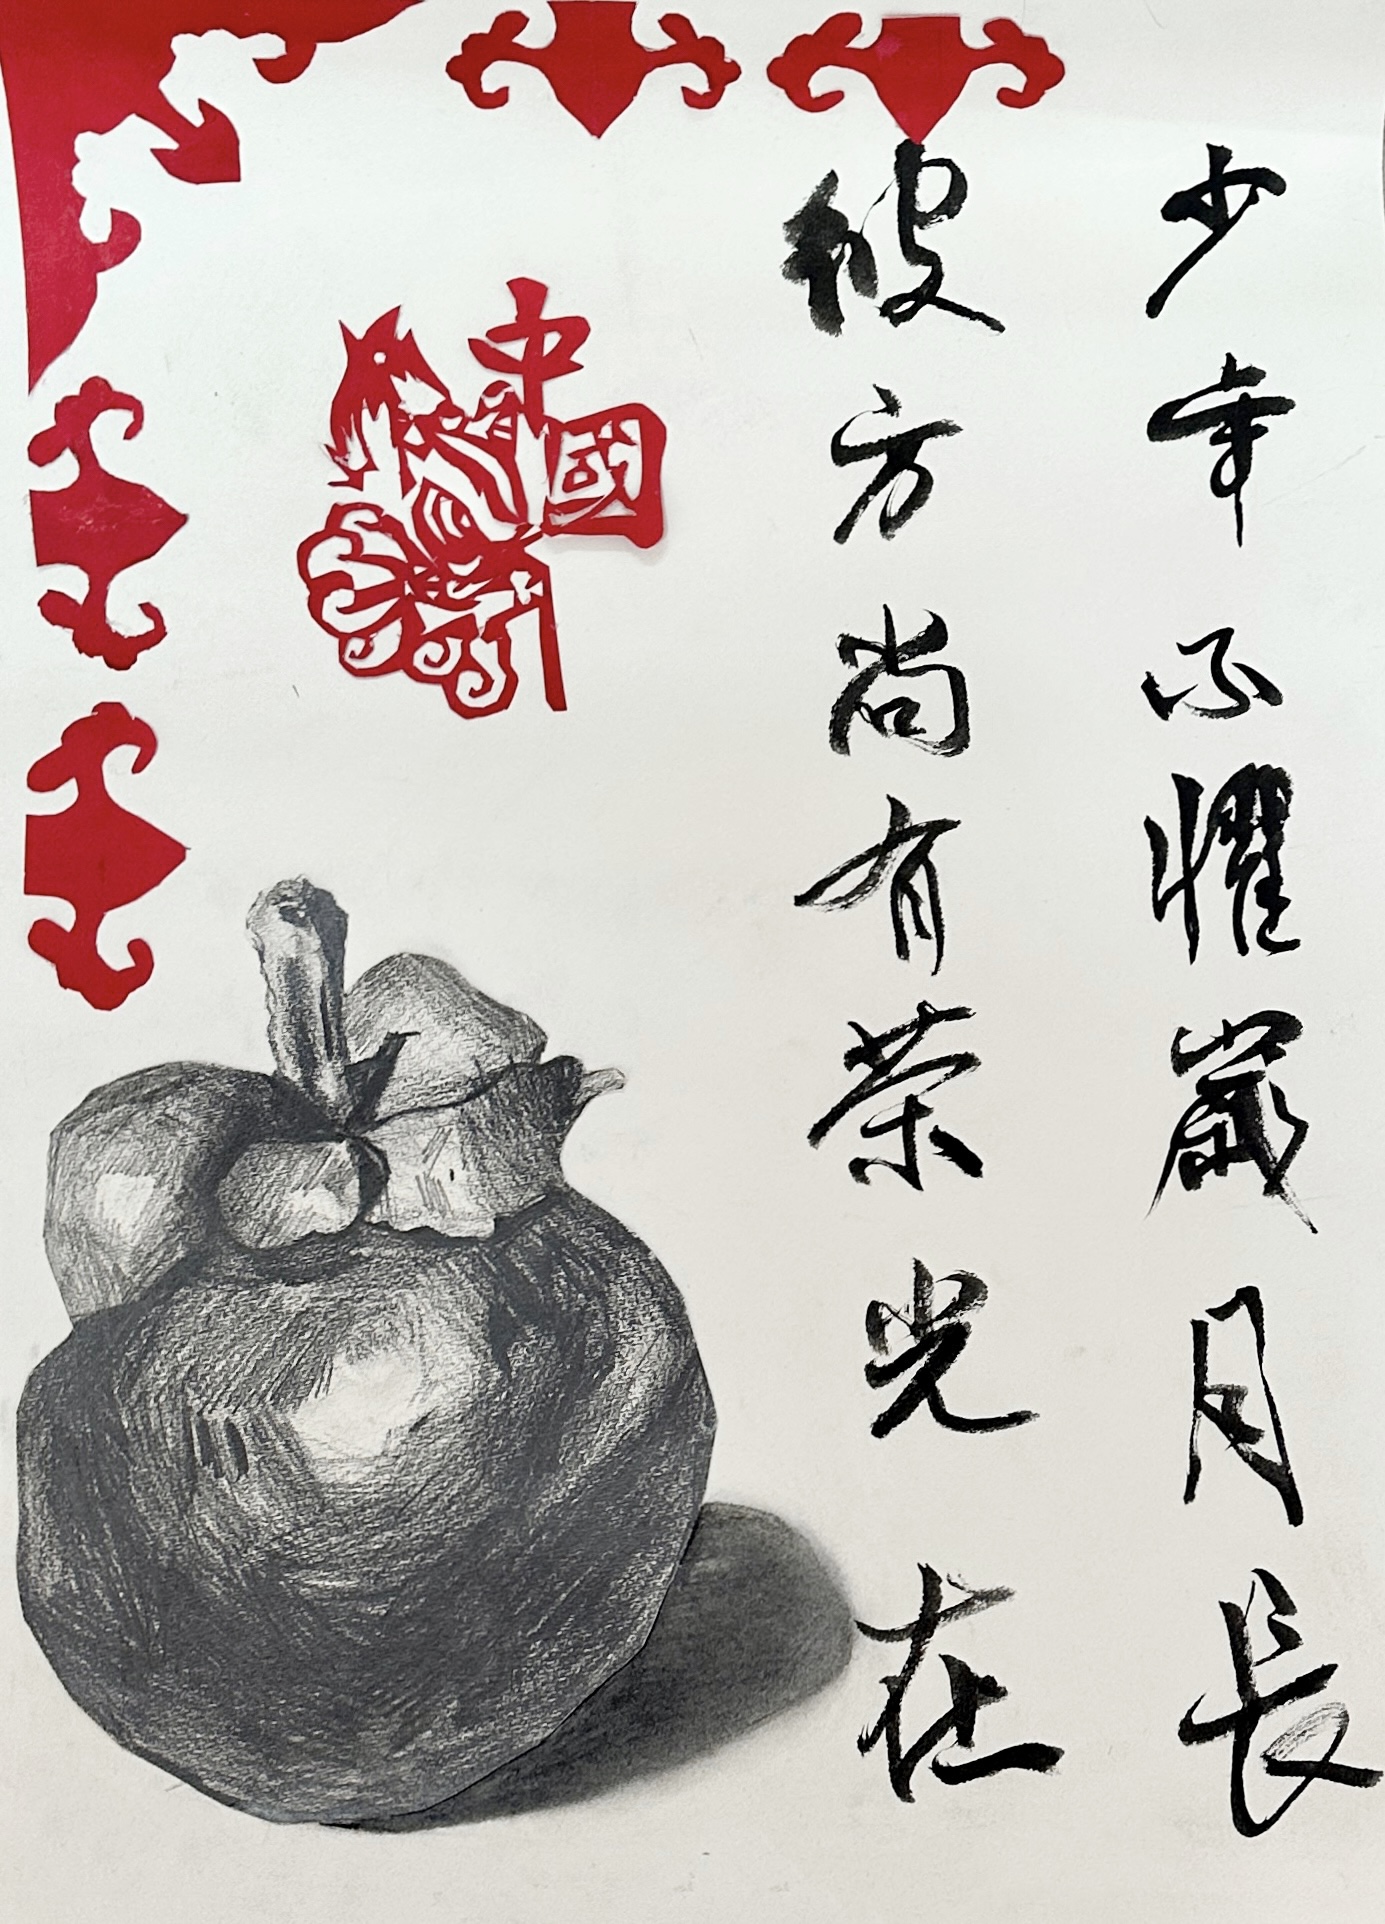 少年不懼歲月長
彼方尚有荣光在
中國